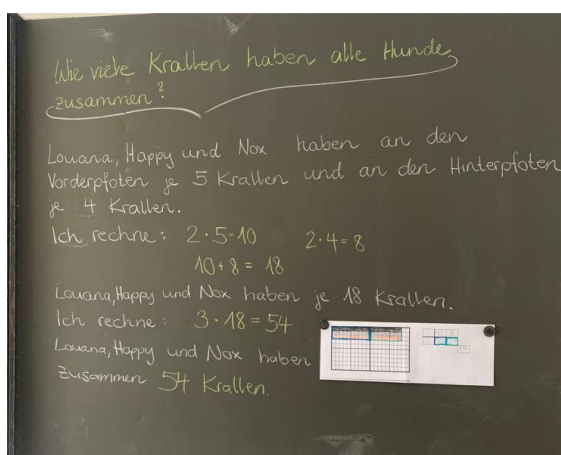 Wie viele Krallen haben alle Hunde
zusammen?
Louana, Happy und Nox haben an den
Vorderpfoten je 5 Krallen und an den Hinterpfoten
je 4 Krallen.
Ich rechne: 2·5=10 2·4=8
10+8=18
Louana, Happy und Nox haben je 18 Krallen.
Ich rechne: 3·18=54
Louana, Happy und Nox haben
zusammen 54 Krallen.